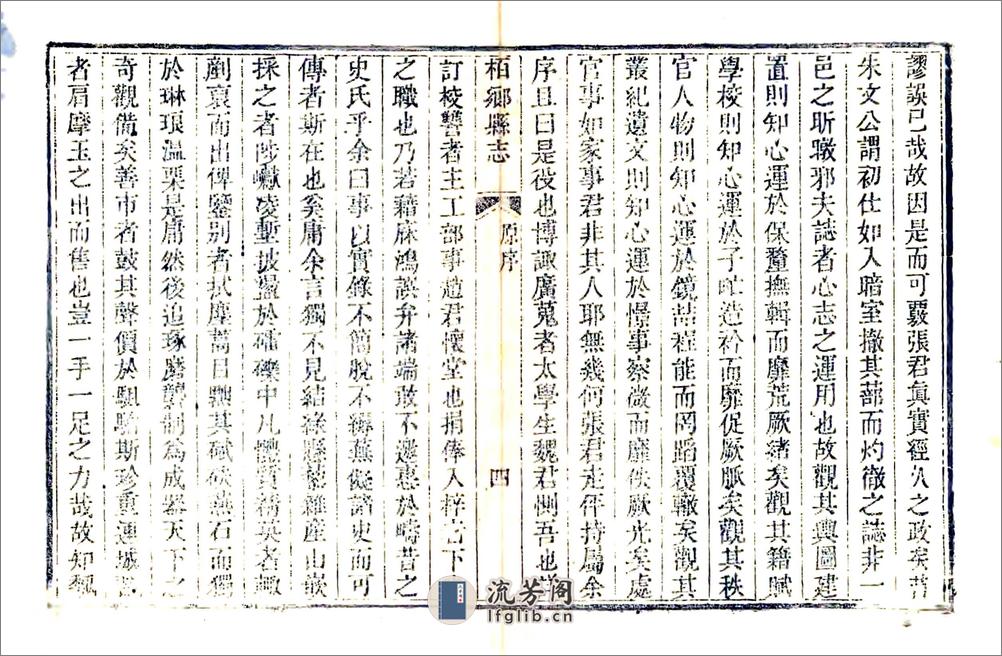 謬誤已哉故因是而可覈張君眞實經久之政矣昔
朱文公謂初仕如入暗室撤其蔀而灼徹之誌非一
邑之昕曒邪夫誌者心志之運用也故觀其輿圖建
置則知心運於保釐撫輯而靡荒厥緒矣觀其籍賦
學校則知心運於子𤯝造衿而靡促厥脈矣觀其秩
官人物則知心運於鏡喆程能而罔蹈覆轍矣觀其
叢紀遺文則知心運於憬事察微而靡佚厥光矣處
官事如家事君非其人耶無幾何張君走伻持屬余
序且曰是役也博諏廣蒐者太學生魏君惻吾也
栢鄉縣志
原序
四
訂校讐者主工部事趙君懷堂也捐俸入梓
下
之職也乃若藉麻鴻誤弁諸端敢不邀惠於疇昔之
史氏乎余曰事以實錄不簡脫不
蕪儗諸史而可
傳者斯在也奚庸余言獨不見結綠縣藜雜產山嵌
採之者陟巘凌塹披
於礧礫中凡
者輒
剷裒而出俾鑒別者拭塵蒿目
其碔砆燕石而獨
於琳琅溫栗是庸然後追琢磨礱制爲成器天下之
奇觀備矣善市者鼓其聲價於
斯珍重連城
者肩摩玉之出而售也豈一手一足之力哉故知魏
流芳阁
lfglib.cn